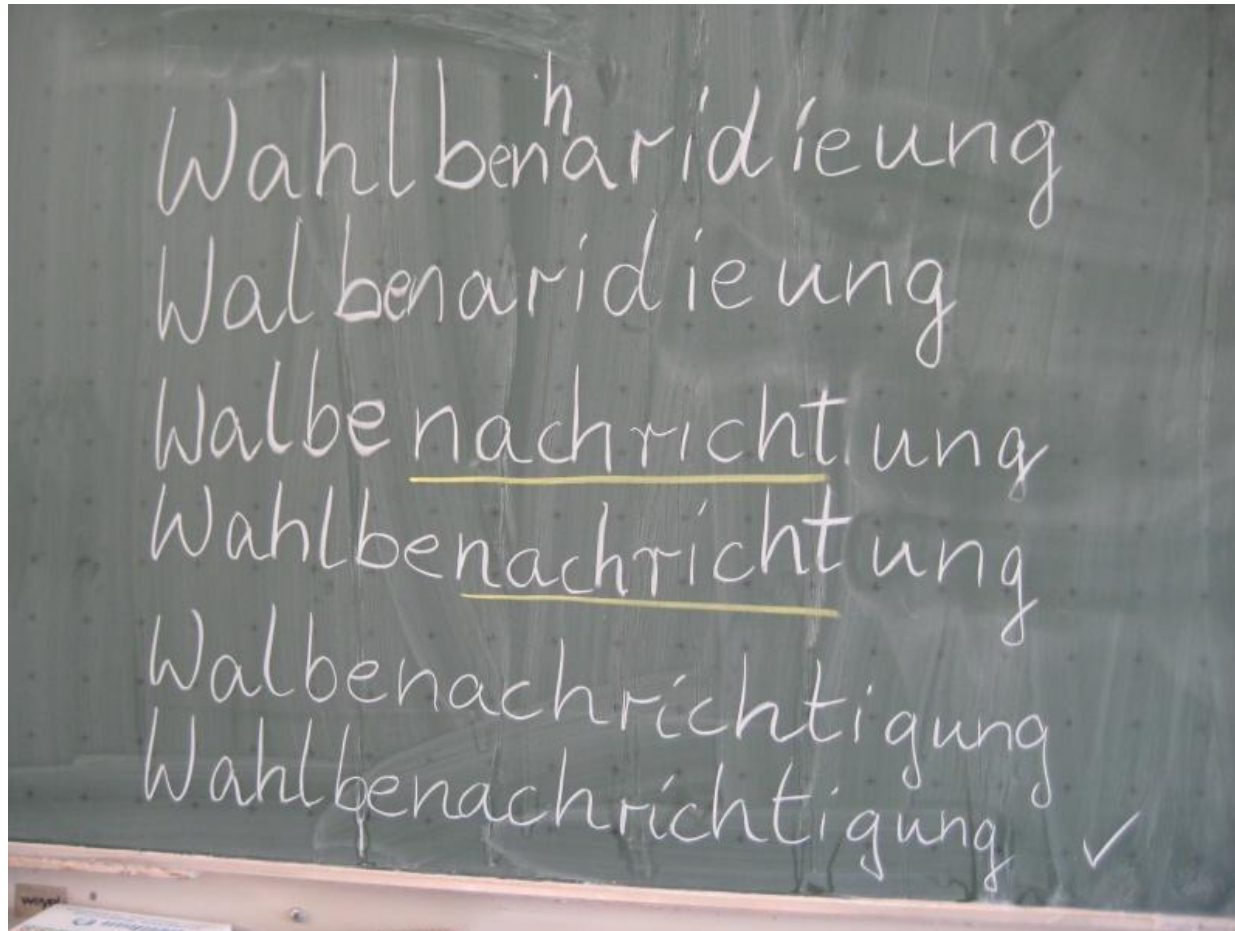 Wahlbenharidieung
Walbenaridieung
Walbenachrichtung
Wahlbenachrichtung
Walbenachrichtigung
Wahlbenachrichtigung ✓